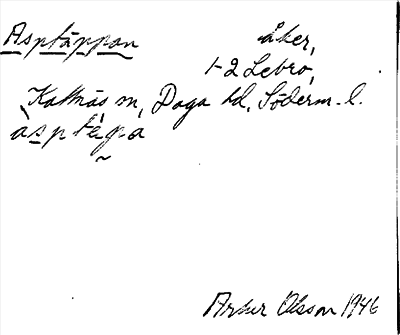 Asptäppan åker,
1-2 Lebro,
Kattnäs sn, Daga hd, Söderm. l.
àsptépa
Artur Olsson 1946